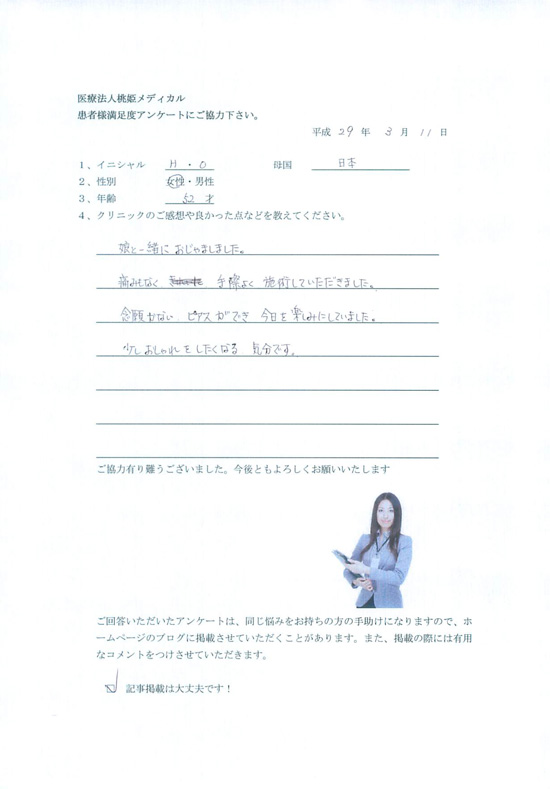 医療法人桃姫メディカル
患者様満足度アンケートにご協力下さい。
平成 29 年 3 月 11 日
1、イニシャル H・O 母国 日本
2、性別 女性・男性
3、年齢 52 才
4、クリニックのご感想や良かった点などを教えてください。
娘と一緒におじゃましました。
痛みもなく、手際よく施術していただきました。
念願かない ピアスができ 今日を楽しみにしていました。
少しおしゃれをしたくなる 気分です。
ご協力有り難うございました。今後ともよろしくお願いいたします
ご回答いただいたアンケートは、同じ悩みをお持ちの方の手助けになりますので、ホ
ームページのブログに掲載させていただくことがあります。また、掲載の際には有用
なコメントをつけさせていただきます。
記事掲載は大丈夫です！